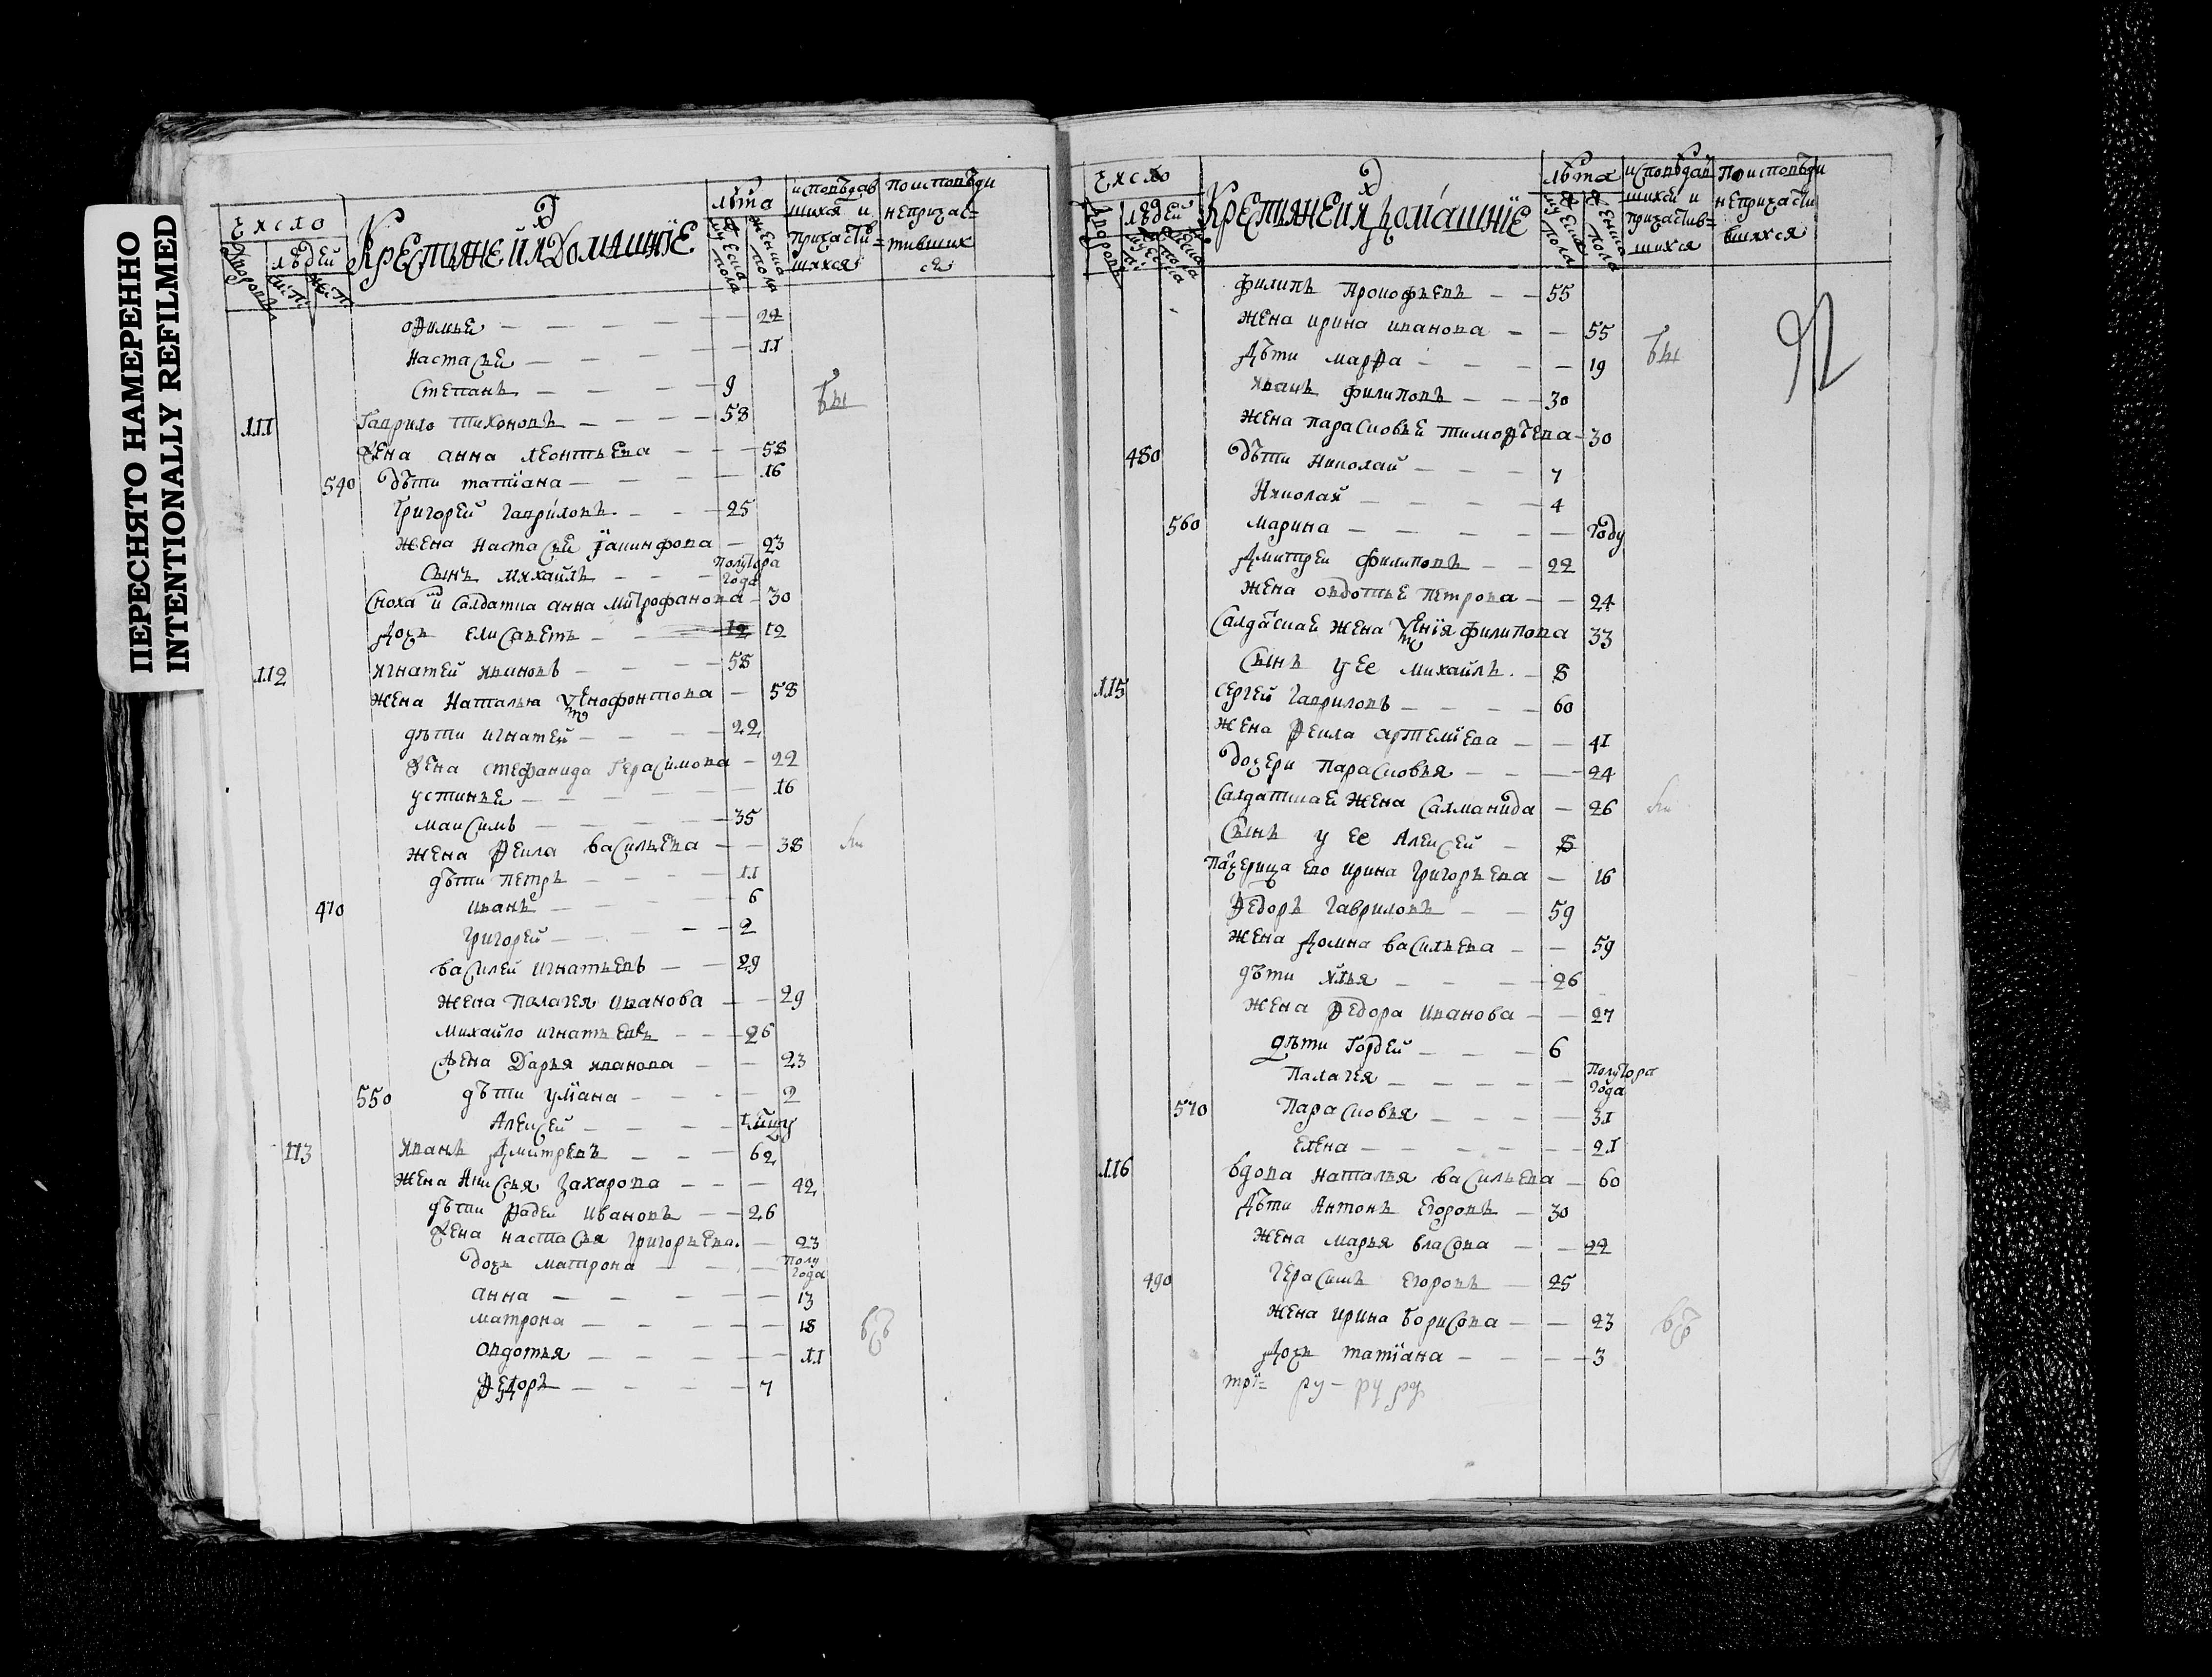 ПЕРЕСНЯТО НАМЕРЕННО
INTENTIONALLY REFILMED
число
дворовъ
людей
м: п:
ж: п:
Крестьяне и ихъ домашнїе
лѣта
мужеска пола
женска пола
исповѣдав
шихся и
причасти=
шихся
по исповѣди
непричас=
тивших
ся
офимья — 22
настасья — 11
степанъ — 9
111 гаврило тихоновъ — 58
жена анна леонтьева — 58
540 дѣти татїана — 16
григорей гавриловъ — 25
жена настасья їакинфова — 23
сынъ михаилъ — полутора года
сноха и салдатка анна митрофанова — 30
дочь елисаветъ — 12 12
112 игнатей ивановъ — 58
жена наталья ѯенофонтова — 58
дѣти игнатей — 22
жена стефанида герасимова — 22
устинья — 16
максимъ — 35
жена фекла васильева — 38
дѣти петръ — 11
470 иванъ — 6
григорей — 2
василей игнатьевъ — 29
жена палагея иванова — 29
михайло игнатьевъ — 26
жена дарья иванова — 23
550 дѣти улїана — 2
алексей —
113 иванъ дмитревъ — 62
жена анисья захарова — 42
дѣти фадеи ивановъ — 26
жена настасья григорьева — 23
дочь матрона — полу года
анна — 13
матрона — 18
овдотья — 11
федоръ — 7
число
дворовъ
людей
Крестьяне и ихъ домашнїе
лѣта
мужеска пола
женска пола
исповѣдав
шихся и
причастив=
шихся
по исповѣди
непричасти
вшихся
92
филипъ прокофьевъ — 55
жена ирина иванова — 55
дѣти марфа — 19
иванъ филиповъ — 30
жена парасковья тимофѣева — 30
480 дѣти николай — 7
николай — 4
560 марина — году
дмитреи филиповъ — 22
жена овдотья петрова — 24
салдатская жена ѯенїя филипова 33
сынъ у ее михаилъ — 8
115 сергей гавриловъ — 60
жена фекла артемїева — 41
дочери парасковья — 24
салдатская жена салманида — 26
сынъ у ее алексей — 8
падчерица ево ирина григорьева — 16
федоръ гавриловъ — 59
жена домна васильева — 59
дѣти илья — 26
жена федора иванова — 27
дѣти гордей — 6
палагея — полутора года
570 парасковья — 31
елена — 21
116 вдова наталья васильева — 60
дѣти антонъ егоровъ — 30
жена марья власова — 22
490 герасимъ егоровъ — 25
жена ирина борисова — 23
дочь татїана — 3
трї= ру - ру ру